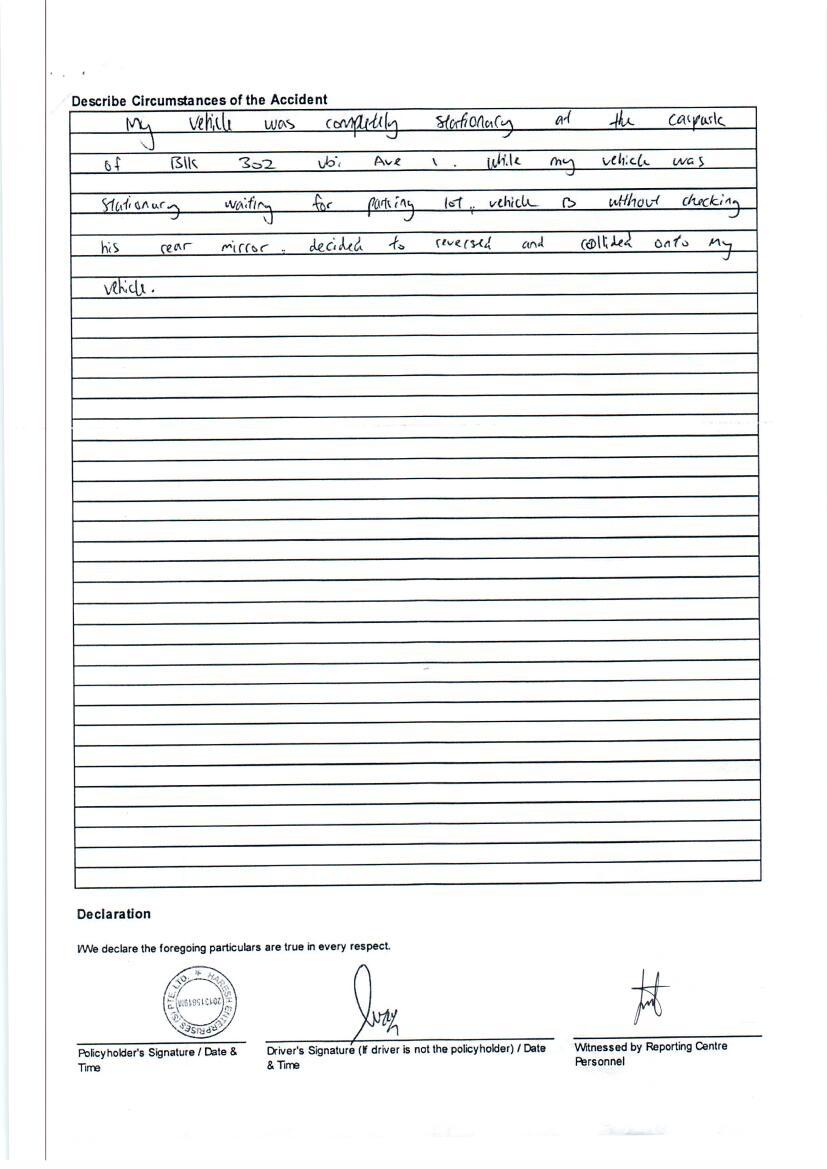 Describe Circumstances of the Accident
My vehicle was completely stationary at the carpark
of Blk 302 Ubi Ave 1. While my vehicle was
stationary waiting for parking lot, vehicle B without checking
his rear mirror, decided to reversed and collided onto my
vehicle.
Declaration
I/We declare the foregoing particulars are true in every respect.
HARESH ENTERPRISES (S) PTE. LTD.
Policyholder's Signature / Date &
Time
Driver's Signature (If driver is not the policyholder) / Date
& Time
Witnessed by Reporting Centre
Personnel